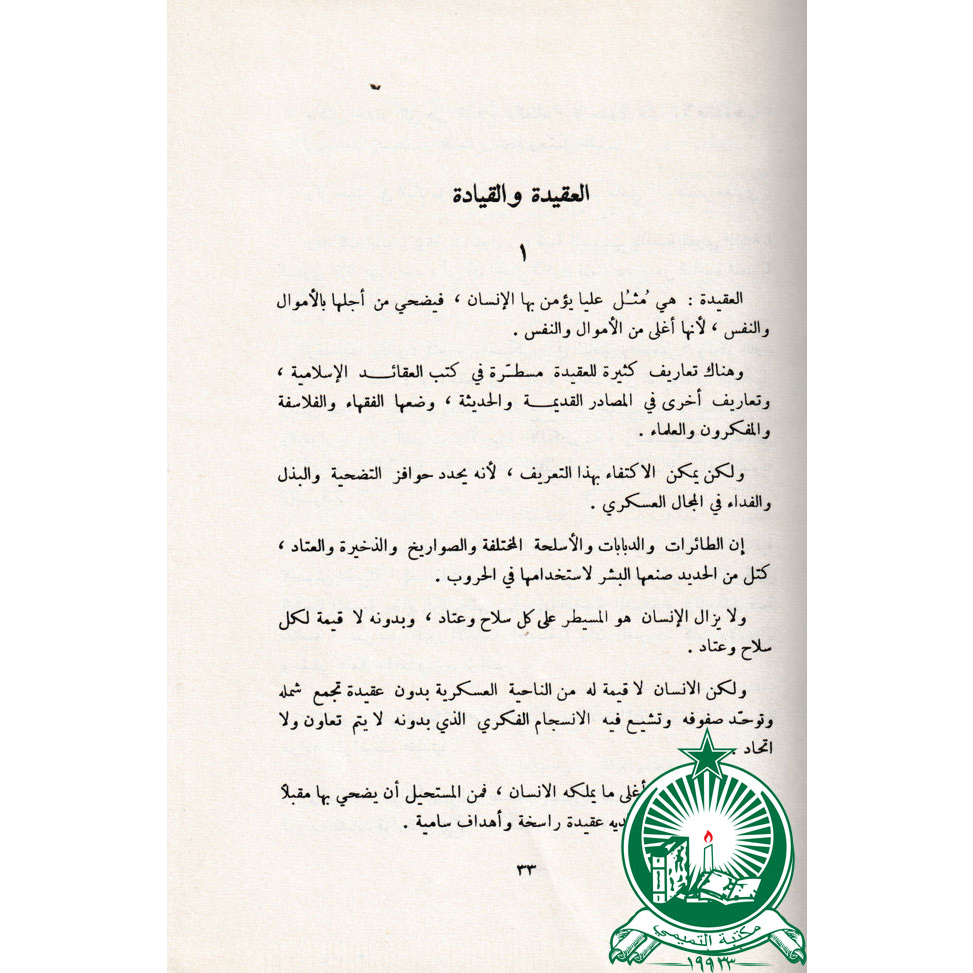 العقيدة والقيادة
١
العقيدة : هي مُثـُل عليا يؤمن بها الإنسان ، فيضحي من أجلها بالأموال
والنفس ، لأنها أغلى من الأموال والنفس .
وهناك تعاريف كثيرة للعقيدة مسطّرة في كتب العقائد الإسلامية ،
وتعاريف أخرى في المصادر القديمة والحديثة ، وضعها الفقهاء والفلاسفة
والمفكرون والعلماء .
ولكن يمكن الاكتفاء بهذا التعريف ، لأنه يحدد حوافز التضحية والبذل
والفداء في المجال العسكري .
إن الطائرات والدبابات والأسلحة المختلفة والصواريخ والذخيرة والعتاد ،
كتل من الحديد صنعها البشر لاستخدامها في الحروب .
ولا يزال الإنسان هو المسيطر على كل سلاح وعتاد ، وبدونه لا قيمة لكل
سلاح وعتاد .
ولكن الانسان لا قيمة له من الناحية العسكرية بدون عقيدة تجمع شمله
وتوحّد صفوفه وتشيع فيه الانسجام الفكري الذي بدونه لا يتم تعاون ولا
اتحاد .
أغلى ما يملكه الانسان ، فمن المستحيل أن يضحي بها مقبلاً
عقيدة راسخة وأهداف سامية .
٣٣
مكتبة التميمي
١٩٩٣